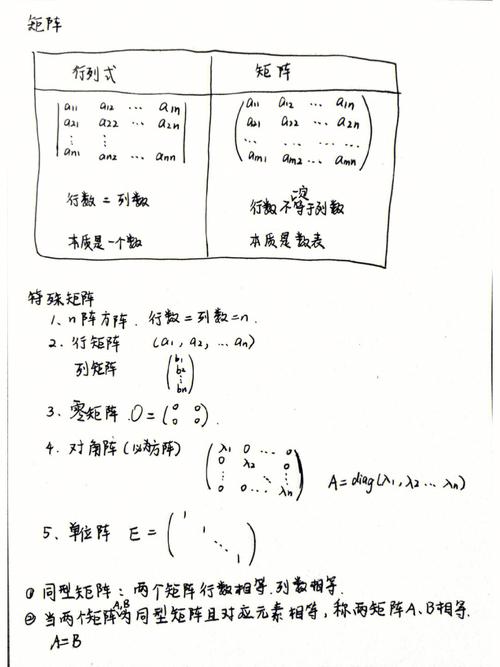 矩阵
行列式 矩阵
a11 a12 … a1n
a21 a22 … a2n
⋮ ⋮
an1 an2 … ann
a11 a12 … a1n
a21 a22 … a2n
… … … …
am1 am2 … amn
行数 = 列数
行数不一定等于列数
本质是一个数
本质是数表
特殊矩阵
1、n阵方阵. 行数=列数=n.
2. 行矩阵 (a1, a2, … an)
列矩阵 (b1 b2 ⋮ bn)
3. 零矩阵. O = (0 0
0 0).
4. 对角阵(必为方阵) (λ1 0 … 0
0 λ2 0
⋮ ⋱ ⋮
0 0 … λn) A=diag(λ1, λ2 … λn)
5、单位阵 E = (1
1
⋱
1)
① 同型矩阵: 两个矩阵行数相等.列数相等.
② 当两个矩阵A,B为同型矩阵且对应元素相等, 称两矩阵A、B相等.
A=B